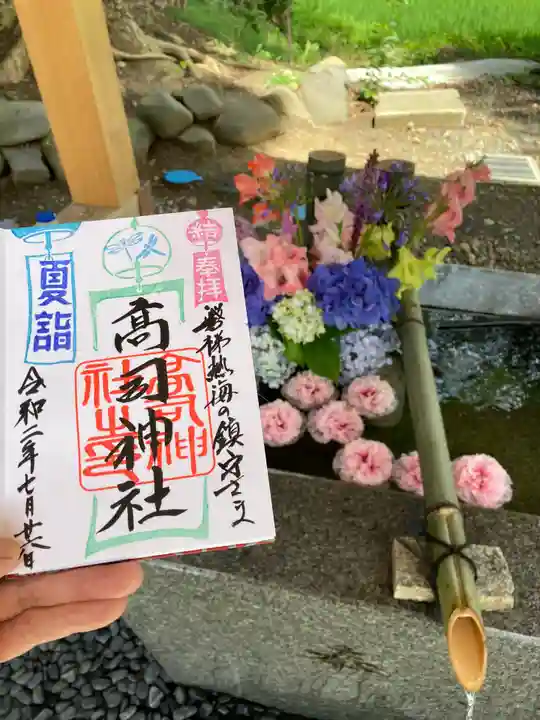 奉拝
磐梯熱海の鎮守さま
高司神社
高司神社之印
夏詣
令和二年七月廿六日